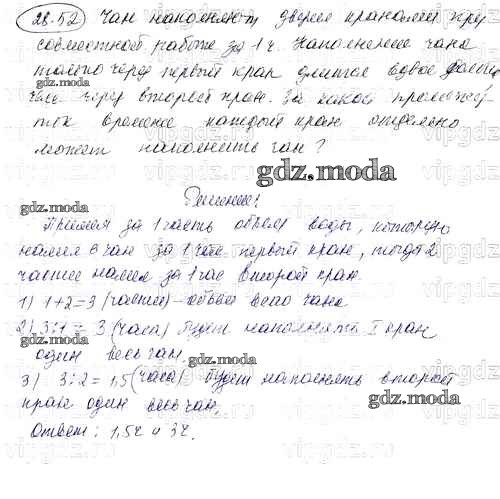 28.52 Чан наполняют двумя кранами при
совместной работе за 1 ч. Наполнение чана
только через первый кран длится вдвое больше
чем через второй кран. За какой промежу
ток времени каждый кран отдельно
может наполнить чан?
gdz.moda
gdz.moda
Решение:
Примем за 1 часть объем воды, которую
налил в чан за 1 час первый кран, тогда 2
части налил за 1 час второй кран.
1) 1+2=3 (части) - объем всего чана
gdz.moda
2) 3:1 = 3 (часа) будет наполнять I кран
один весь чан.
gdz.moda
3) 3:2 = 1,5 (часа) будет наполнять второй
кран один весь чан.
gdz.moda
Ответ: 1,5ч и 3ч.